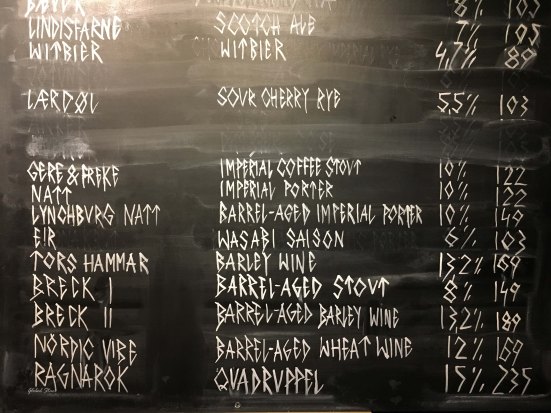 LINDISFARNE SCOTCH ALE 7% 105
WITBIER WITBIER 4,7% 89
LÆRDØL SOUR CHERRY RYE 5,5% 103
GERE & FREKE IMPERIAL COFFEE STOUT 10% 122
NATT IMPERIAL PORTER 10% 122
LYNCHBURG NATT BARREL-AGED IMPERIAL PORTER 10% 149
EIR WASABI SAISON 6% 103
TORS HAMMAR BARLEY WINE 13,2% 169
BRECK I BARREL-AGED STOUT 8% 149
BRECK II BARREL-AGED BARLEY WINE 13,2% 189
NORDIC VIBE BARREL-AGED WHEAT WINE 12% 169
RAGNAROK QUADRUPPEL 15% 235